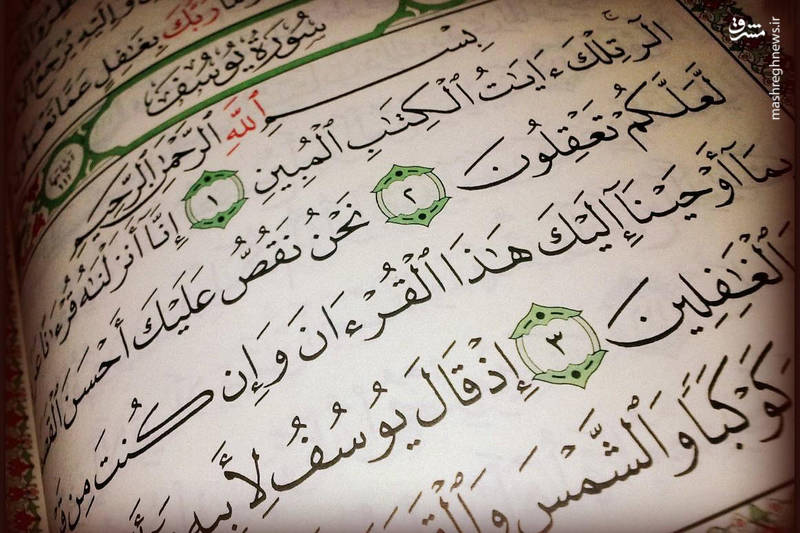 وَإِلَيْهِ يُرْجَعُ
رَبُّكَ بِغَٰفِلٍ عَمَّا
سُورَةُ يُوسُفَ
بِسْمِ ٱللَّهِ ٱلرَّحْمَٰنِ ٱلرَّحِيمِ
الٓر تِلْكَ ءَايَٰتُ ٱلْكِتَٰبِ ٱلْمُبِينِ ١ إِنَّآ أَنزَلْنَٰهُ قُرْءَٰنًا
لَّعَلَّكُمْ تَعْقِلُونَ ٢ نَحْنُ نَقُصُّ عَلَيْكَ أَحْسَنَ
بِمَآ أَوْحَيْنَآ إِلَيْكَ هَٰذَا ٱلْقُرْءَانَ وَإِن كُنتَ مِن
ٱلْغَٰفِلِينَ ٣ إِذْ قَالَ يُوسُفُ لِأَبِيهِ
كَوْكَبًا وَٱلشَّمْسَ
مشرق
mashreghnews.ir